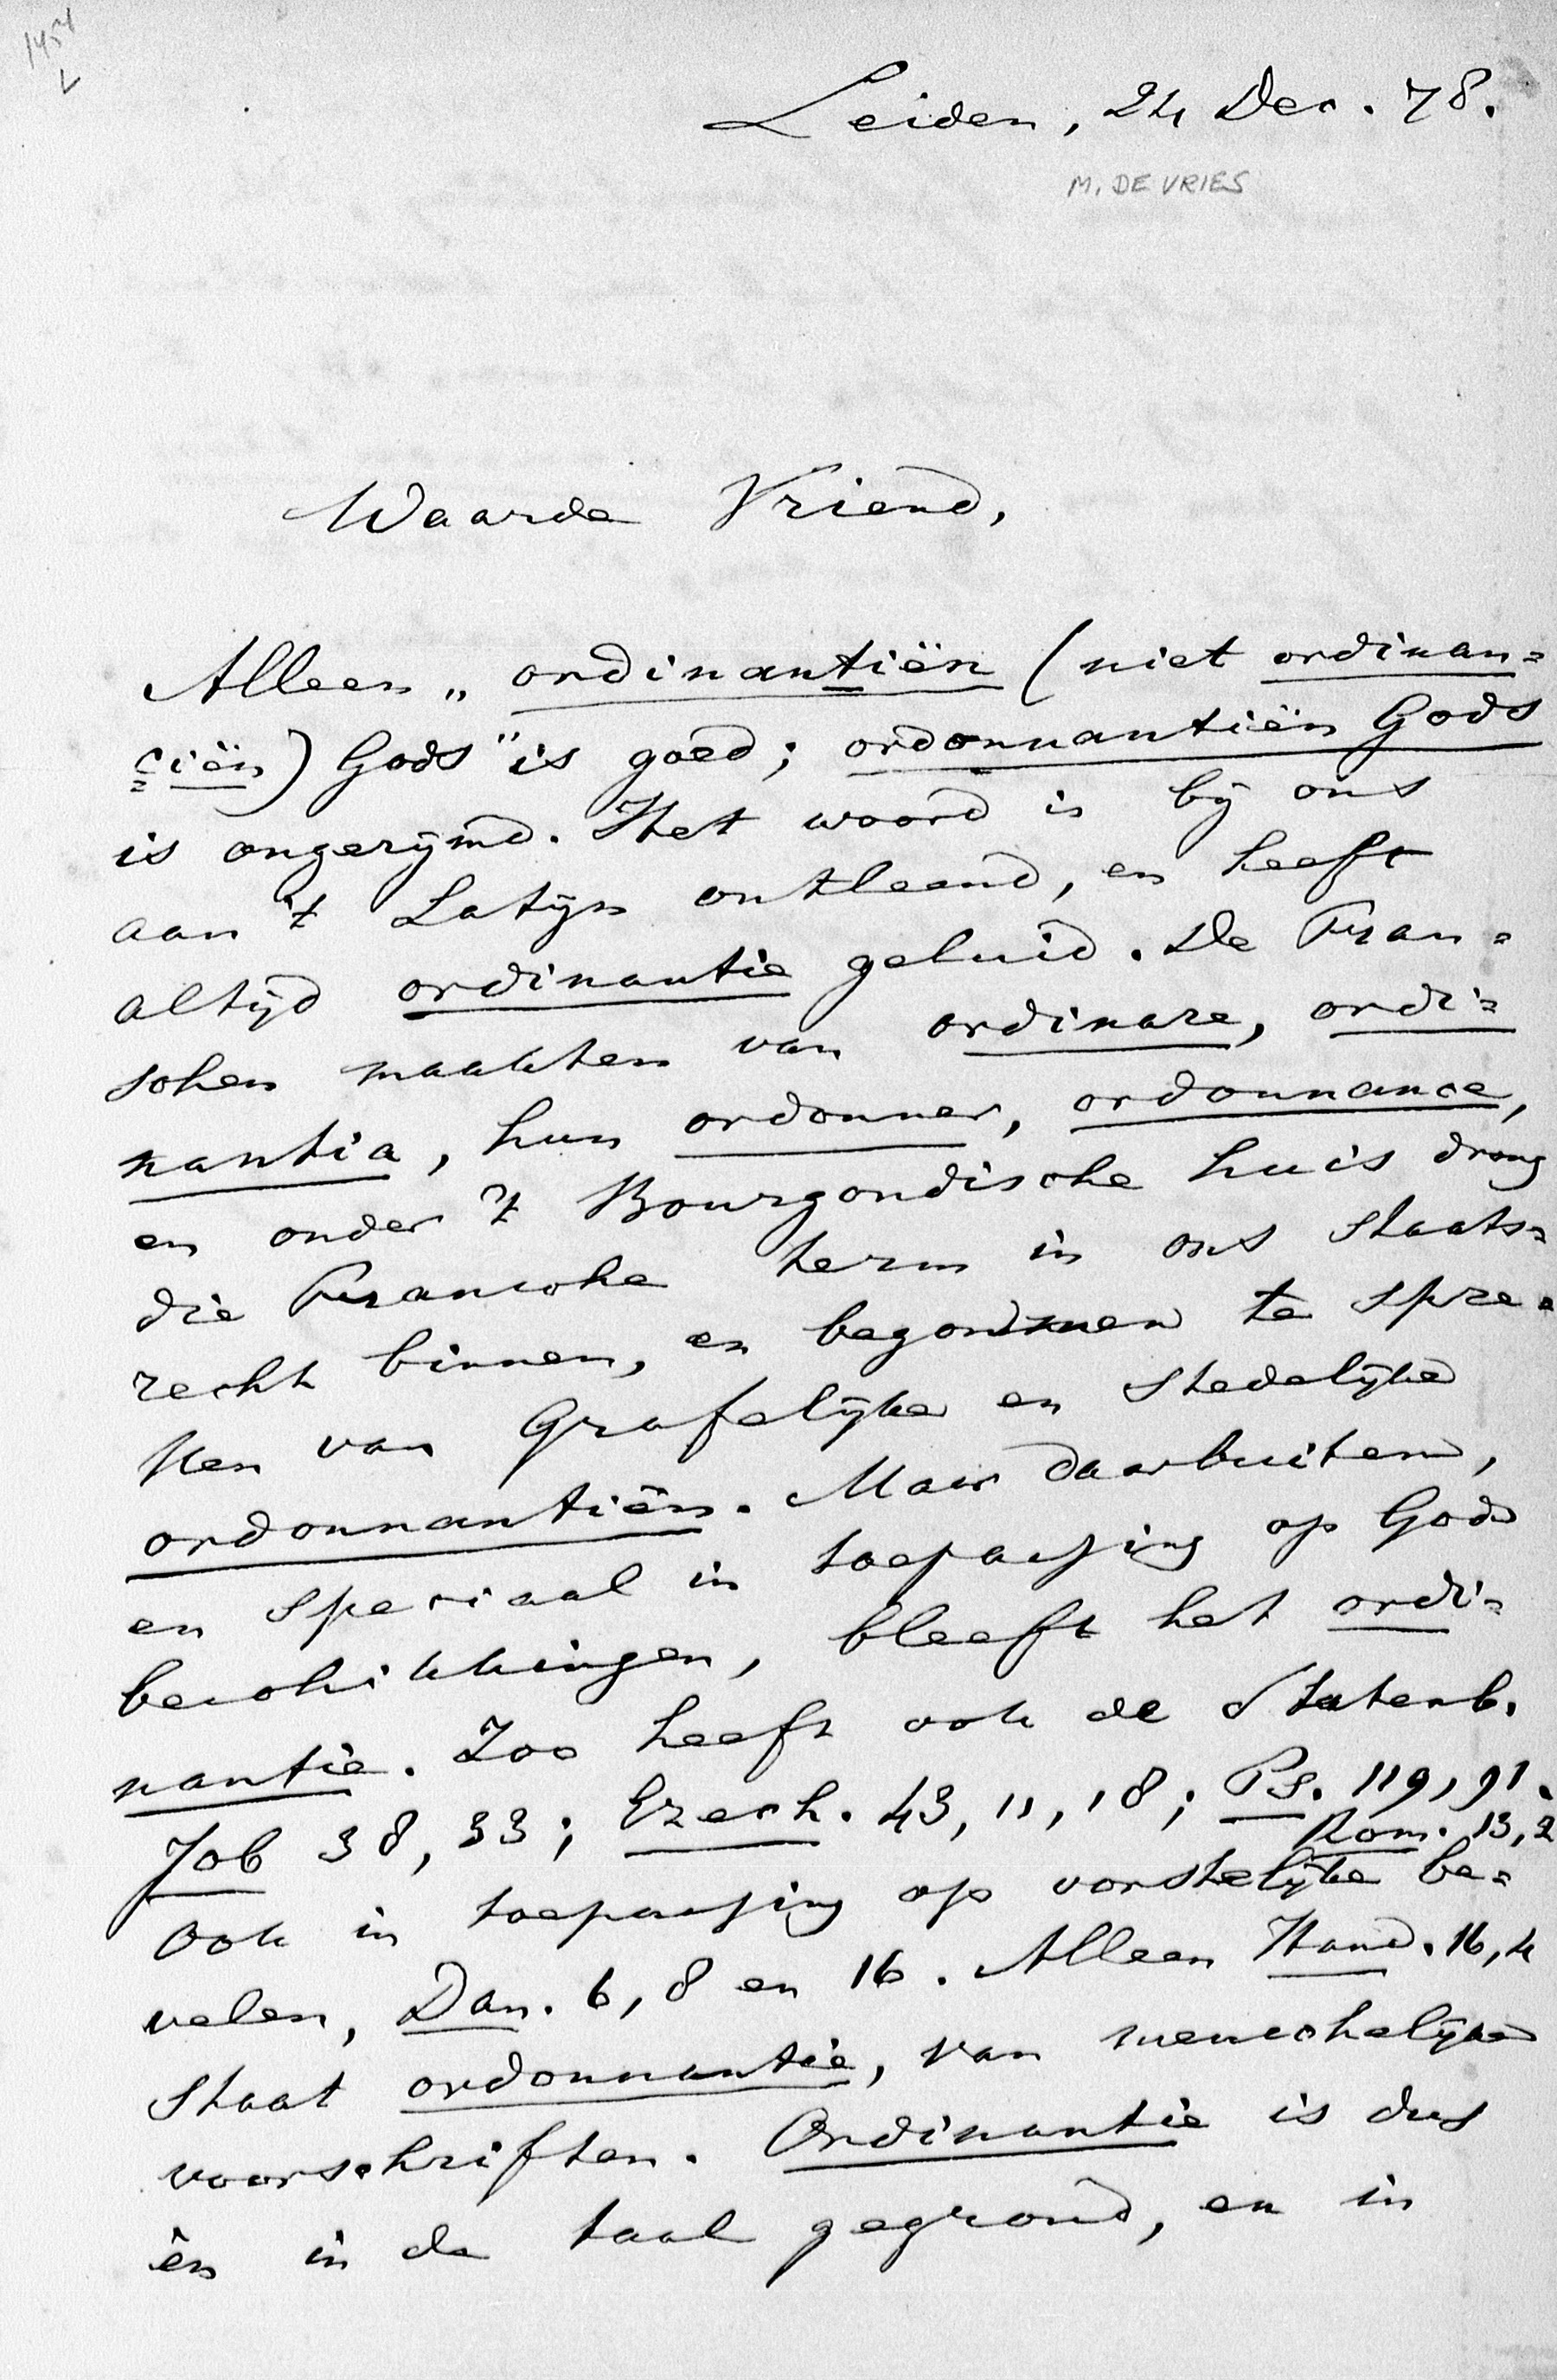 1451
L
Leiden, 24 Dec. 78.
M. DE VRIES
Waarde Vriend,
Alleen „ordinantiën (niet ordinan=
ciën) Gods" is goed; ordonnantiën Gods
is ongerijmd. Het woord is bij ons
aan 't Latijn ontleend, en heeft
altijd ordinantie geluid. De Fran=
schen maakten van ordinare, ordi=
nantia, hun ordonner, ordonnance,
en onder 't Bourgondische huis drong
die Fransche term in ons staats=
recht binnen, en begonnen te spre=
ken van Grafelijke en Stedelijke
ordonnantiën. Maar daarbuiten,
en speciaal in toepassing op Gods
beschikkingen, bleeft het ordi=
nantie. Zoo heeft ook de Statenb.
Job 38, 33; Ezech. 43, 11, 18; Ps. 119, 91.
Rom. 13, 2
Ook in toepassing op vorstelijke be=
velen, Dan. 6, 8 en 16. Alleen Hand. 16, 4
staat ordonnantie, van menschelijke
voorschriften. Ordinantie is dus
èn in de taal gegrond, en in